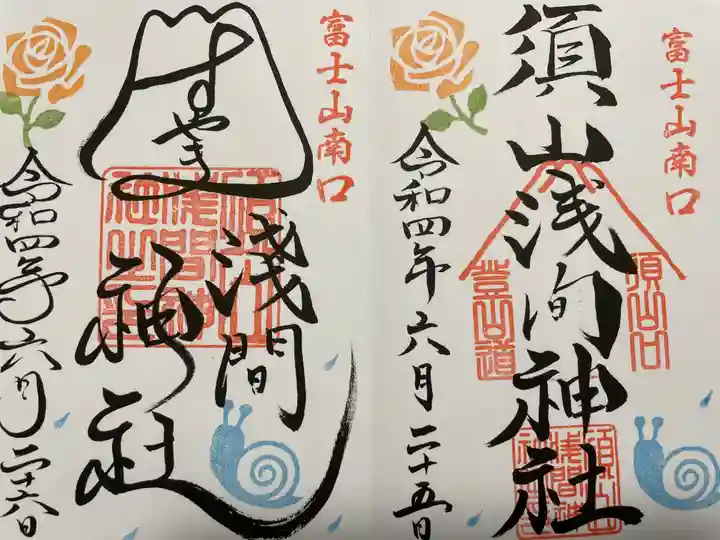 富士山南口
須山浅間神社
須山口
登山道
令和四年六月二十五日
富士山南口
淺間
神社
令和四年六月二十六日